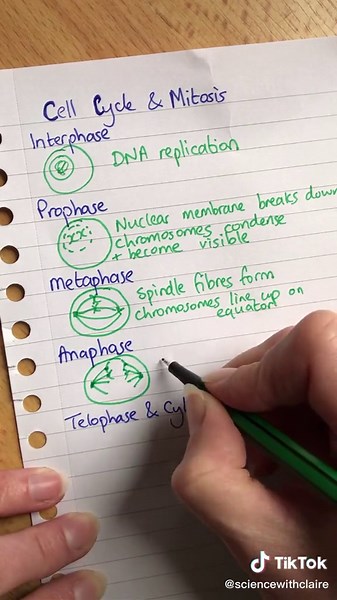 Cell Cycle & Mitosis
Interphase
DNA replication
Prophase
Nuclear membrane breaks down
chromosomes condense
+ become visible
metaphase
Spindle fibres form
chromosomes line up on
equator
Anaphase
Telophase &
TikTok
@sciencewithclaire